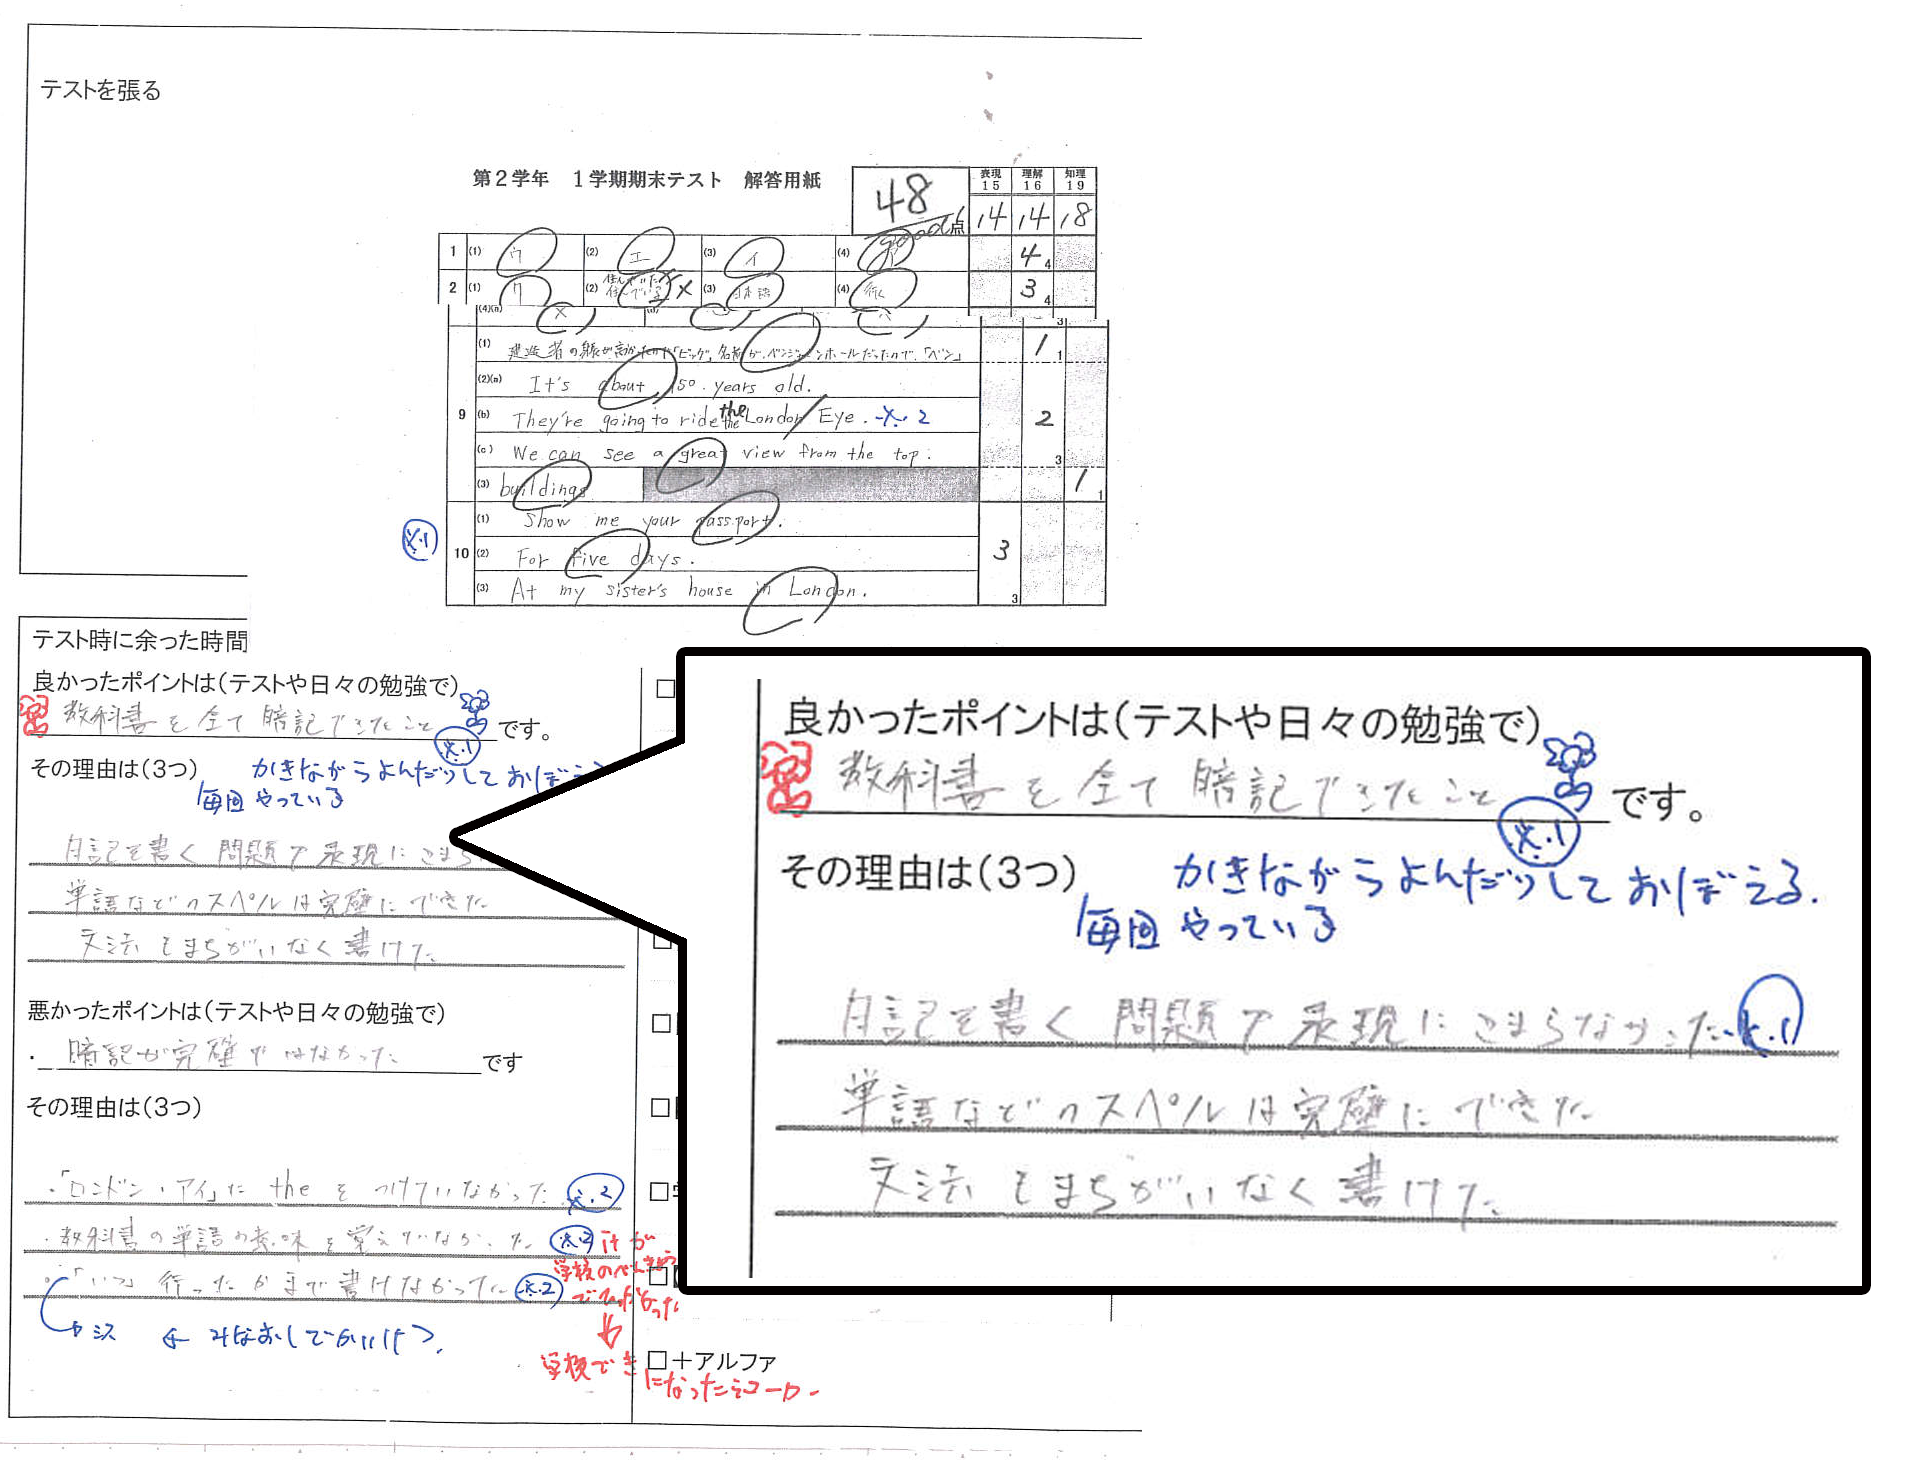 テストを張る
第2学年 1学期期末テスト 解答用紙
48 点
good!
表現 理解 知理
15 16 19
14 14 18
1 (1) ウ (2) エ (3) イ (4)
4 4
2 (1) (2) 住んでいる × (3) 日本語 (4) 行く
3 4
(4)(n) × 3
9 (1) 建造者の 高かったので「ビッグ」名前がベンジャミンホールだったので、「ベン」
1 1
(2)(a) It's about 150 years old.
(b) They're going to ride the London Eye. ※.2
2
(c) We can see a great view from the top.
3
(3) buildings
1 1
※.1
10 (1) Show me your passport.
(2) For five days.
3
(3) At my sister's house in London.
3
テスト時に余った時間
良かったポイントは(テストや日々の勉強で)
教科書を全て暗記できたこと です。
※.1
その理由は(3つ)
かきながらよんだりしておぼえる
毎回やっている
日記を書く問題で表現にこまら
単語などのスペルは完璧にできた
文法もまちがいなく書けた
悪かったポイントは(テストや日々の勉強で)
・暗記が完璧ではなかった です
その理由は(3つ)
・「ロンドン・アイ」に the をつけていなかった ※.2
・教科書の単語の意味を覚えていなかった ※.2
・「いつ」行ったかまで書けなかった ※.2
ミス ← みなおしてがいけつ
学校のべんきょう
学校でき
になったらコーロー
□+アルファ
良かったポイントは(テストや日々の勉強で)
教科書を全て暗記できたこと です。
※.1
その理由は(3つ)
かきながらよんだりしておぼえる.
毎回やっている
日記を書く問題で表現にこまらなかった ※.1
単語などのスペルは完璧にできた
文法もまちがいなく書けた